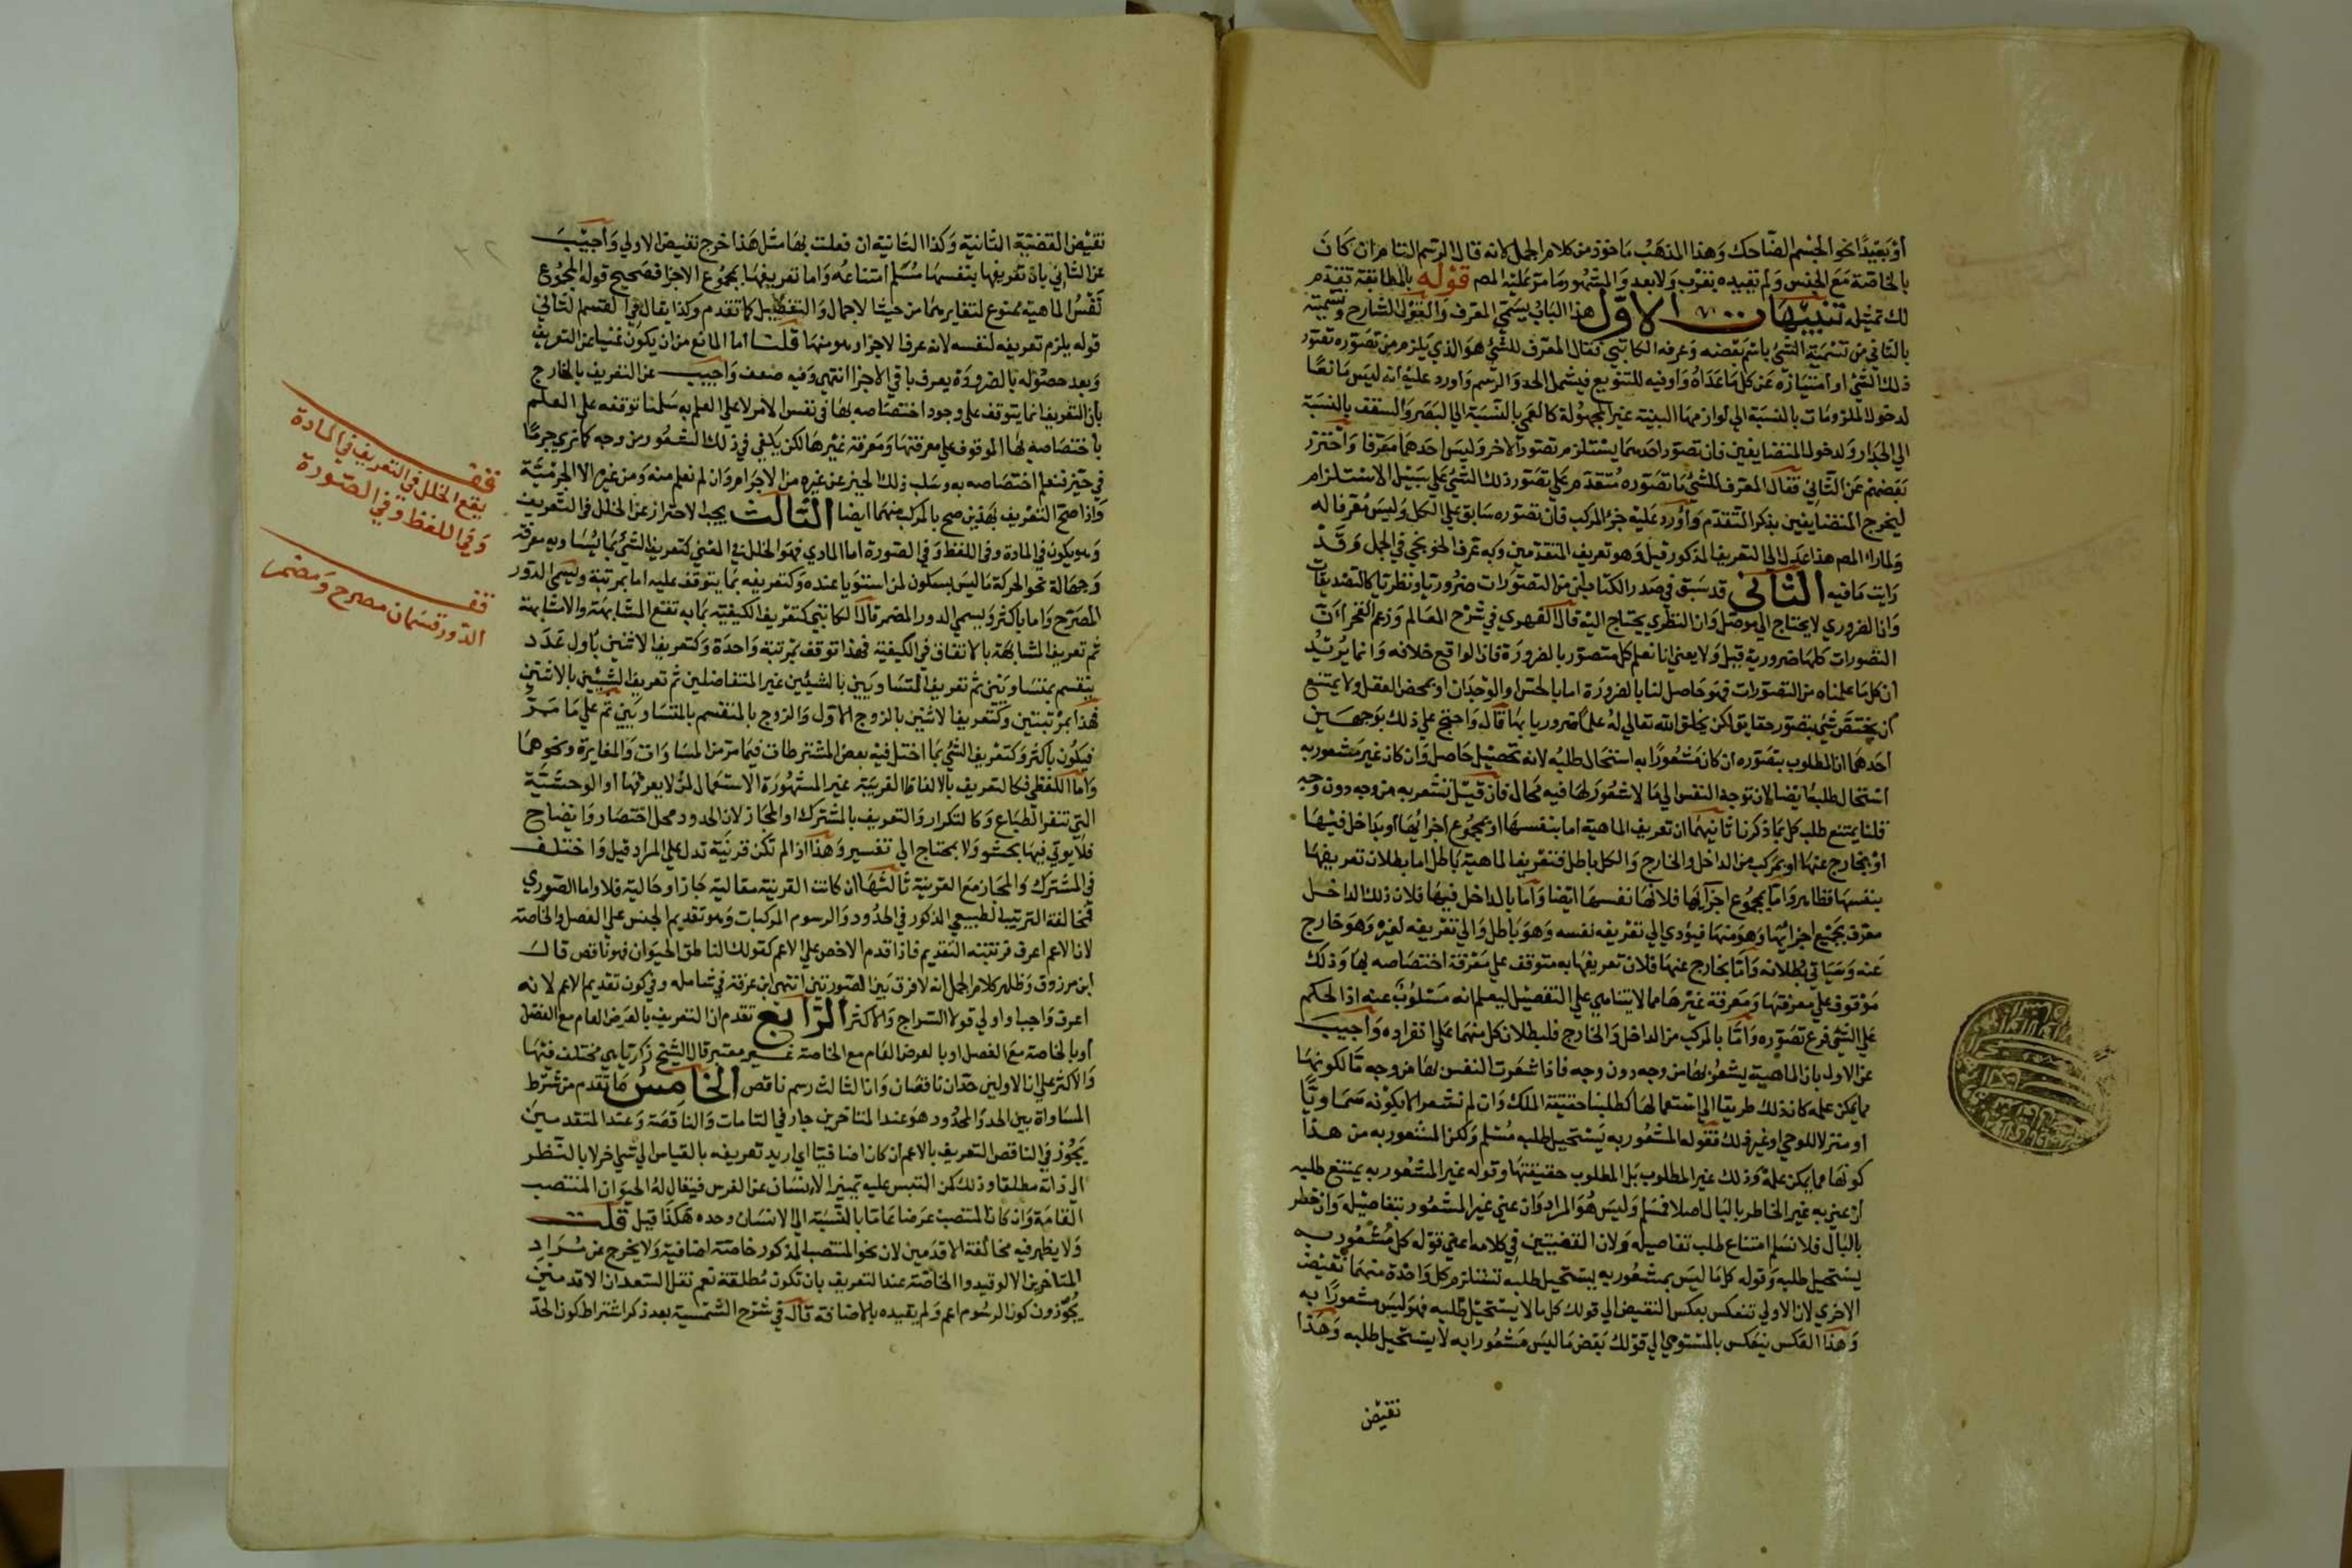 أو بعيدا نحو الجسم الضاحك وهذا المذهب ماخوذ من كلام الجمل لانه قال الرسم التام ان كان
بالخاصة مع الجنس ولم نقيده بقرب ولا بعد والمشهور ما مر عليه المص قوله بالمطابقة تقدم
لك تمثيله تنبيهات الاول هذا الباب يسمي المعرف والقول الشارح وتسمية
بالثاني من تسمية الشئ باسم بعضه وعرفه الكاتبي فقال المعرف للشئ هو الذي يلزم من تصوره تصور
ذلك الشئ او امتيازه عن كل ما عداه واوفيه للتنويع فيشمل الحد والرسم واورد عليه انه ليس مانعا
لدخول الملزومات بالنسبة الي لوازمها البينة غير المجهولة كالعمي بالنسبة الي البصر والسقف بالنسبة
الي الجدار ولدخول المتضايفين فان تصور احدهما يستلزم تصور الاخر وليس احدهما معرفا واحترز
بعضهم عن الثاني فقال المعرف للشئ ما تصوره متقدم علي تصور ذلك الشئ علي سبيل الاستلزام
ليخرج المتضايفين بذكر التقدم واورد عليه جزء المركب فان تصوره سابق علي الكل وليس معرفا له
ولما راي المص هذا عدل الي التعريف المذكور قبل وهو تعريف المتقدمين وبه عرف الخونجي في الجمل وقد
رايت ما فيه الثاني قد سبق في صدر الكتاب ان من التصورات ضروريا ونظريا كالتصديقات
وان الضروري لا يحتاج الي موصل وان النظري يحتاج اليه قال الفهري في شرح المعالم وزعم الفخر ان
التصورات كلها ضرورية قيل ولا يعني انا نعلم كل متصور بالضرورة فان الواقع خلافه وانما يريد
ان كل ما علمناه من التصورات فهو حاصل لنا بالضرورة اما بالحس او الوجدان او بمحض العقل ولا يمتنع
ان يختص شئ بتصور حقايق لكن يخلق الله تعالي له علما ضروريا بها قاله واحتج علي ذلك بوجهين
احدهما ان المطلوب بتصوره ان كان مشعورا به استحال طلبه لانه تحصيل حاصل وان كان غير مشعور به
استحال طلبه ايضا لان توجه النفس الي ما لا شعور لها فيه محال فان قيل نشعر به من وجه دون وجه
قلنا يمتنع طلب كل بما ذكرنا ثانيهما ان تعريف الماهية اما بنفسها او بمجموع اجزائها او بداخل فيها
او بخارج عنها او بمركب من الداخل والخارج والكل باطل فتعريف الماهية باطل اما بطلان تعريفها
بنفسها فظاهر واما بمجموع اجزايها فلانها نفسها ايضا واما بالداخل فيها فلان ذلك الداخل
معرف بجميع اجزائها وهو منها فيؤدي الي تعريفه نفسه وهو باطل والي تعريفه لغيره وهو خارج
عنه وسياتي بطلانه واما بخارج عنها فلان تعريفها به متوقف علي معرفة اختصاصه بها وذلك
موقوف علي معرفتها ومعرفة غيرها مما لا يتناهي علي التفصيل ليعلم انه مسلوب عنه اذ الحكم
علي الشئ فرع تصوره واما بالمركب من الداخل والخارج فلبطلان كل منهما علي انفراده واجيب
عن الاول بان الماهية يشعر بها من وجه دون وجه فاذا شعرت النفس بها من وجه ما لكونها
مما يمكن علمه كان ذلك طريقا الي استعمالها كطلبنا حقيقة الملك وان لم نشعر الا بكونه سماويا
او منزلا للوحي او غير ذلك فقوله المشعور به يستحيل طلبه مسلم ولكن المشعور به من هذا
كونها مما يمكن علمه وذلك غير المطلوب بل المطلوب حقيقتها وقوله غير المشعور به يمتنع طلبه
ان عني به غير الخاطر بالبال اصلا فسلم وليس هو المراد وان عني غير المشعور بتفاصيله وان خطر
بالبال فلا نسلم امتناع طلب تفاصيله ولان القضيتين في كلامه اعني قوله كل مشعور به
يستحيل طلبه وقوله كل ما ليس بمشعور به يستحيل طلبه تستلزم كل واحدة منهما نقيض
الاخري لان الاولي تنعكس بعكس النقيض الي قولك كل ما لا يستحيل طلبه فهو ليس مشعورا به
وهذا العكس ينعكس بالمستوي الي قولك بعض ما ليس مشعورا به لا يستحيل طلبه وهذا
نقيض
نقيض القضية الثانية وكذا الثانية ان فعلت بها مثل هذا خرج نقيض الاولي واجيب
عن الثاني بان تعريفها بنفسها مسلم امتناعه واما تعريفها بمجموع الاجزا فصحيح قوله المجموع
نفس الماهية ممنوع لتغايرهما من حيث الاجمال والتفصيل كما تقدم وكذا يقال في القسم الثاني
قوله يلزم تعريفه لنفسه لانه عرف الاجزا وهو منها قلت اما المانع من ان يكون غنيا عن التعريف
وبعد حصوله بالضرورة يعرف باقي الاجزا انتهي وفيه ضعف واجيب عن التعريف بالخارج
بان التعريف انما يتوقف علي وجود اختصاصه بها في نفس الامر لا علي العلم به سلمنا توقفه علي العلم
باختصاصه بها الموقوف علي معرفتها ومعرفة غيرها لكن يكفي في ذلك الشعور من وجه كما نري جرما
في حيز فنعلم اختصاصه به وسلب ذلك الحيز عن غيره من الاجرام وان لم نعلم منه ومن غيره الا الجرمية
واذا صح التعريف بهذين صح بالمركب منهما ايضا الثالث يجب الاحتراز عن الخلل في التعريف
وهو يكون في المادة وفي اللفظ وفي الصورة اما المادي فهو الخلل في المعني كتعريف الشئ بما يساويه معرفة
وجهالة نحو الحركة ما ليس بسكون لمن استويا عنده وكتعريفه بما يتوقف عليه اما بمرتبة ويسمي الدور
المصرح واما باكثر ويسمي الدور المضمر قال الكاتبي كتعريف الكيفية بما به تقع المشابهة واللامشابهة
ثم تعريف المشابهة بالاتفاق في الكيفية فهذا توقف بمرتبة واحدة وكتعريف الاثنين باول عدد
ينقسم بمتساويين ثم تعريف المتساويين بالشيئين غير المتفاضلين ثم تعريف الشيئين بالاثنين
فهذا بمرتبتين وكتعريف الاثنين بالزوج الاول والزوج بالمنقسم بالمتساويين ثم علي ما مر
فيكون باكثر وكتعريف الشئ بما اختل فيه بعض المشترطات فيما مر من المساوات والمغايرة ونحوهما
واما اللفظي فكالتعريف بالالفاظ الغريبة غير المشهورة الاستعمال لمن لا يعرفها او الوحشية
التي تنفر الطباع وكالتكرار والتعريف بالمشترك او المجاز لان الحدود محل اختصار وايضاح
فلا يوتي فيها بحشو ولا بمحتاج الي تفسير وهذا اذا لم تكن قرينة تدل علي المراد قيل واختلف
في المشترك والمجاز مع القرينة ثالثها ان كانت القرينة مقالية جاز او حالية فلا واما الصوري
فمخالفة الترتيب الطبيعي المذكور في الحدود والرسوم المركبات وهو تقديم الجنس علي الفصل والخاصة
لان الاعم اعرف فرتبته التقديم فاذا قدم الاخص علي الاعم كقولك الناطق الحيوان فهو ناقص قال
ابن مرزوق وظاهر كلام الجمل انه لا فرق بين الصورتين انتهي ابن عرفة في شامله وفي كون تقديم الاعم لانه
اعرف واجبا واولي قولا السراج والاكثر الرابع تقدم ان التعريف بالعرض العام مع الفصل
او بالخاصة مع الفصل او بالعرض العام مع الخاصة غير معتبر قال الشيخ زكريا هي مختلف فيها
والاكثر علي ان الاولين حدان ناقصان وان الثالث رسم ناقص الخامس ما تقدم من شرط
المساواة بين الحد والمحدود هو عند المتاخرين جار في التامات والناقصة وعند المتقدمين
يجوز في الناقص التعريف بالاعم ان كان اضافيا اي اريد تعريفه بالقياس الي شئ اخر لا بالنظر
الي ذاته مطلقا وذلك كمن التبس عليه تمييز الانسان عن الفرس فيقال له الحيوان المنتصب
القامة وان كان المنتصب عرضا عاما بالنسبة الي الانسان وحده هكذا قيل قلت
ولا يظهر فيه مخالفة الاقدمين لان نحو المنتصب المذكور خاصة اضافية ولا يخرج عن مراد
المتاخرين الا لو قيدوا الخاصة عند التعريف بان تكون مطلقة نعم نقل السعد ان الاقدمين
يجوزون كون الرسوم اعم ولم يقيده بالاضافة قال في شرح الشمسية بعد ذكر اشتراط كون الحد
قف
يقع الخلل في التعريف في المادة
وفي اللفظ وفي الصورة
قف
الدور قسمان مصرح ومضمر